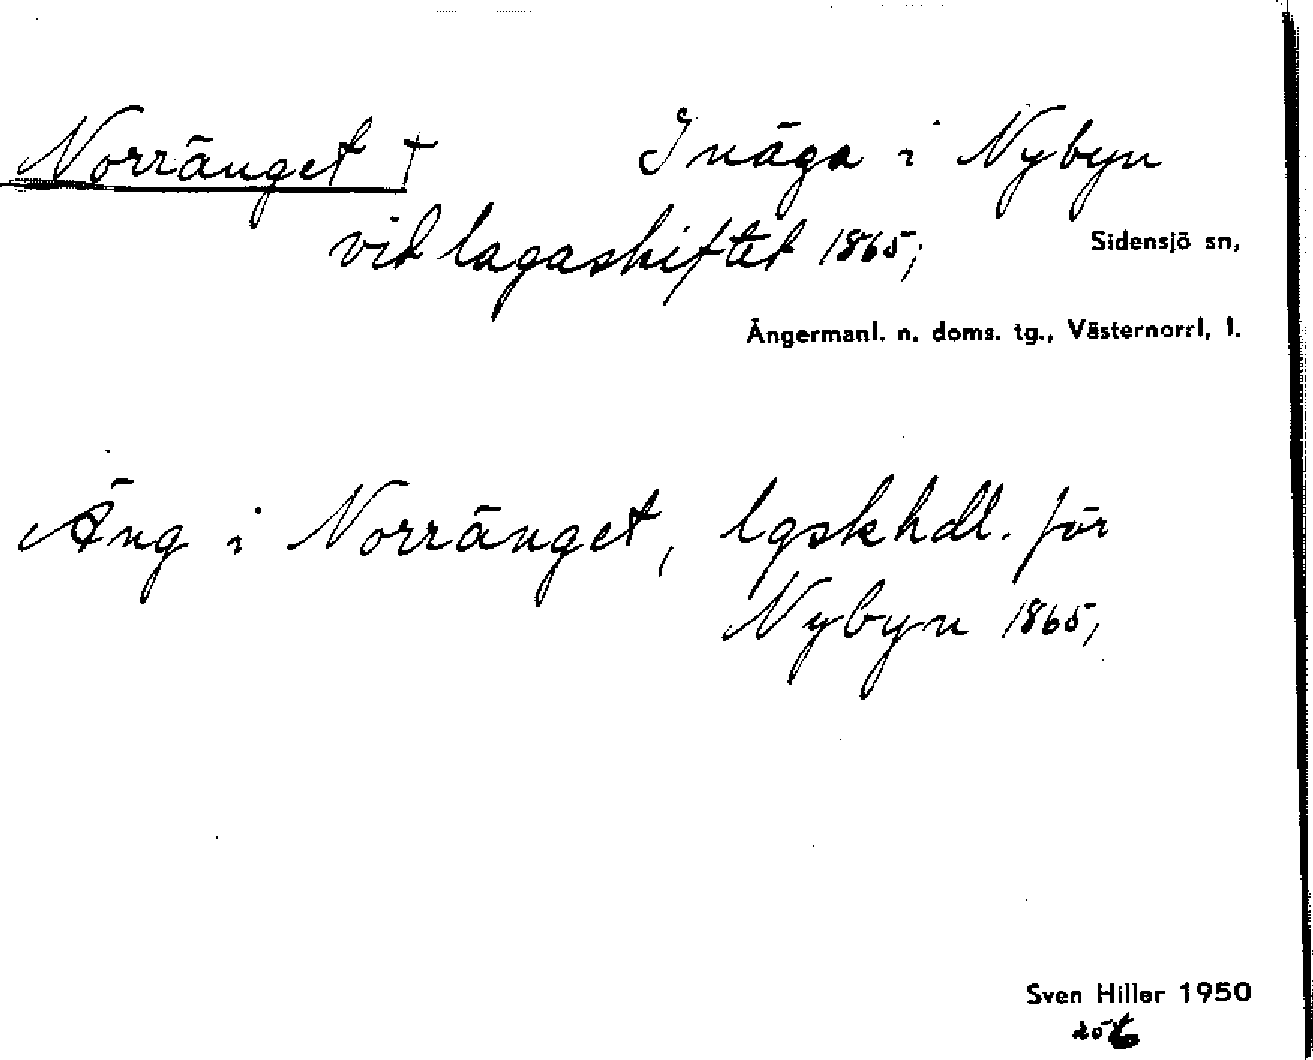 Norränget † Inäga i Nybyn
vid lagaskiftet 1865;
Sidensjö sn,
Ångermanl. n. doms. tg., Västernorrl. l.
Äng i Norränget, lgskhdl. för
Nybyn 1865,
Sven Hiller 1950